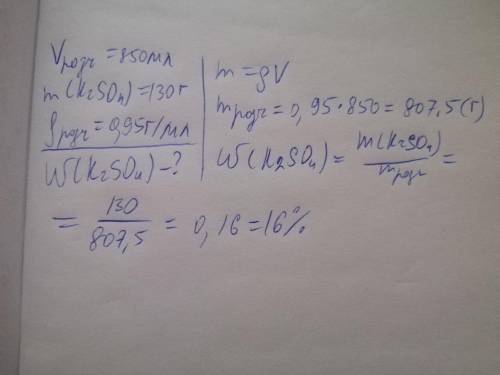 Vрозч = 850мл
m(K₂SO₄) = 130г
ρрозч = 0,95г/мл
W(K₂SO₄) - ?
m = ρV
mрозч = 0,95·850 = 807,5(г)
W(K₂SO₄) = m(K₂SO₄)/mрозч =
= 130/807,5 = 0,16 = 16%